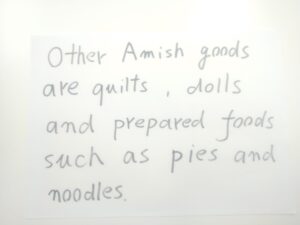 Other Amish goods
are quilts , dolls
and prepared foods
such as pies and
noodles.